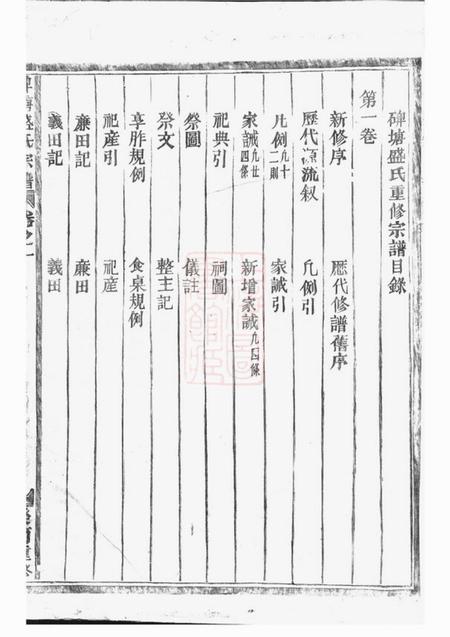 碑塘盛氏重修宗譜目錄
第一卷
新修序　歷代修譜舊序
歷代源流叙　凡例引
凡例凡十二則　家誡引
家誡凡廿四條　新增家誡凡四條
祀典引　祠圖
祭圖　儀註
祭文　整主記
享胙規例　食桌規例
祀產引　祀產
廉田記　廉田
義田記　義田
碑塘盛氏宗譜　卷之一
重修